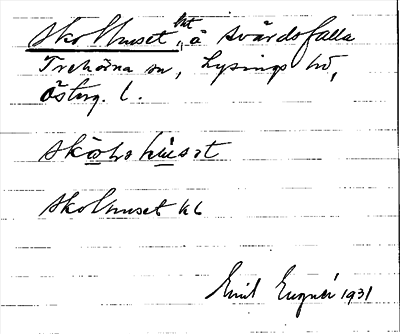 Skolhuset, tht å Svärdsfalla
Trehörna sn, Lysings hd,
Österg. l.
skolhuset
Skolhuset Kl
Emil Eugnér 1931